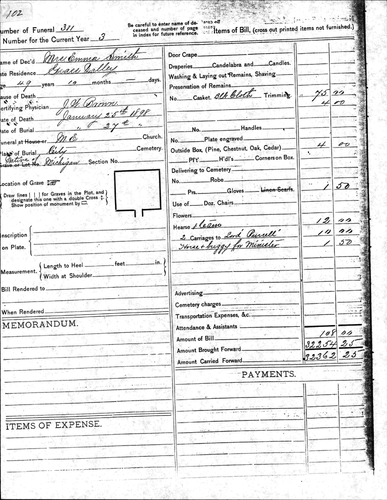 102
Number of Funeral 311
Number for the Current Year 3
Be careful to enter name of deceased and number of page in index for future reference.
Items of Bill, (cross out printed items not furnished.)
Name of Dec'd Mrs Emma Smith
Late Residence Grass Valley
Age 49 years 10 months — days.
Certifying Physician J. W. Brown
Date of Death January 25th 1898
Date of Burial " 27th "
Funeral at House or M.E. Church.
Place of Burial Cemetery.
Native of Michigan Section No.
Location of Grave
Draw lines for Graves in the Plot, and designate this one with a double Cross
Show position of monument by
Description on Plate.
Measurement, Length to Heel feet in.
Width at Shoulder
Bill Rendered to
When Rendered
MEMORANDUM.
ITEMS OF EXPENSE.
Door Crape
Draperies Candelabra and Candles.
Washing & Laying out Remains, Shaving
Preservation of Remains
No. Casket, Cloth Trimming 75 00
4 00
No. Handles
Plate engraved
Outside Box, (Pine, Chestnut, Oak, Cedar) 4 00
Corners on Box.
Delivering to Cemetery
No. Robe
Prs. Gloves Linen Scarfs. 1 50
Use of Doz. Chairs
Flowers
Hearse 1 team 12 00
2 Carriages to 10 00
Horse & buggy for Minister 1 50
Advertising
Cemetery charges
Transportation Expenses, &c.
Attendance & Assistants
Amount of Bill 108 00
Amount Brought Forward 32254 25
Amount Carried Forward 32362 25
PAYMENTS.